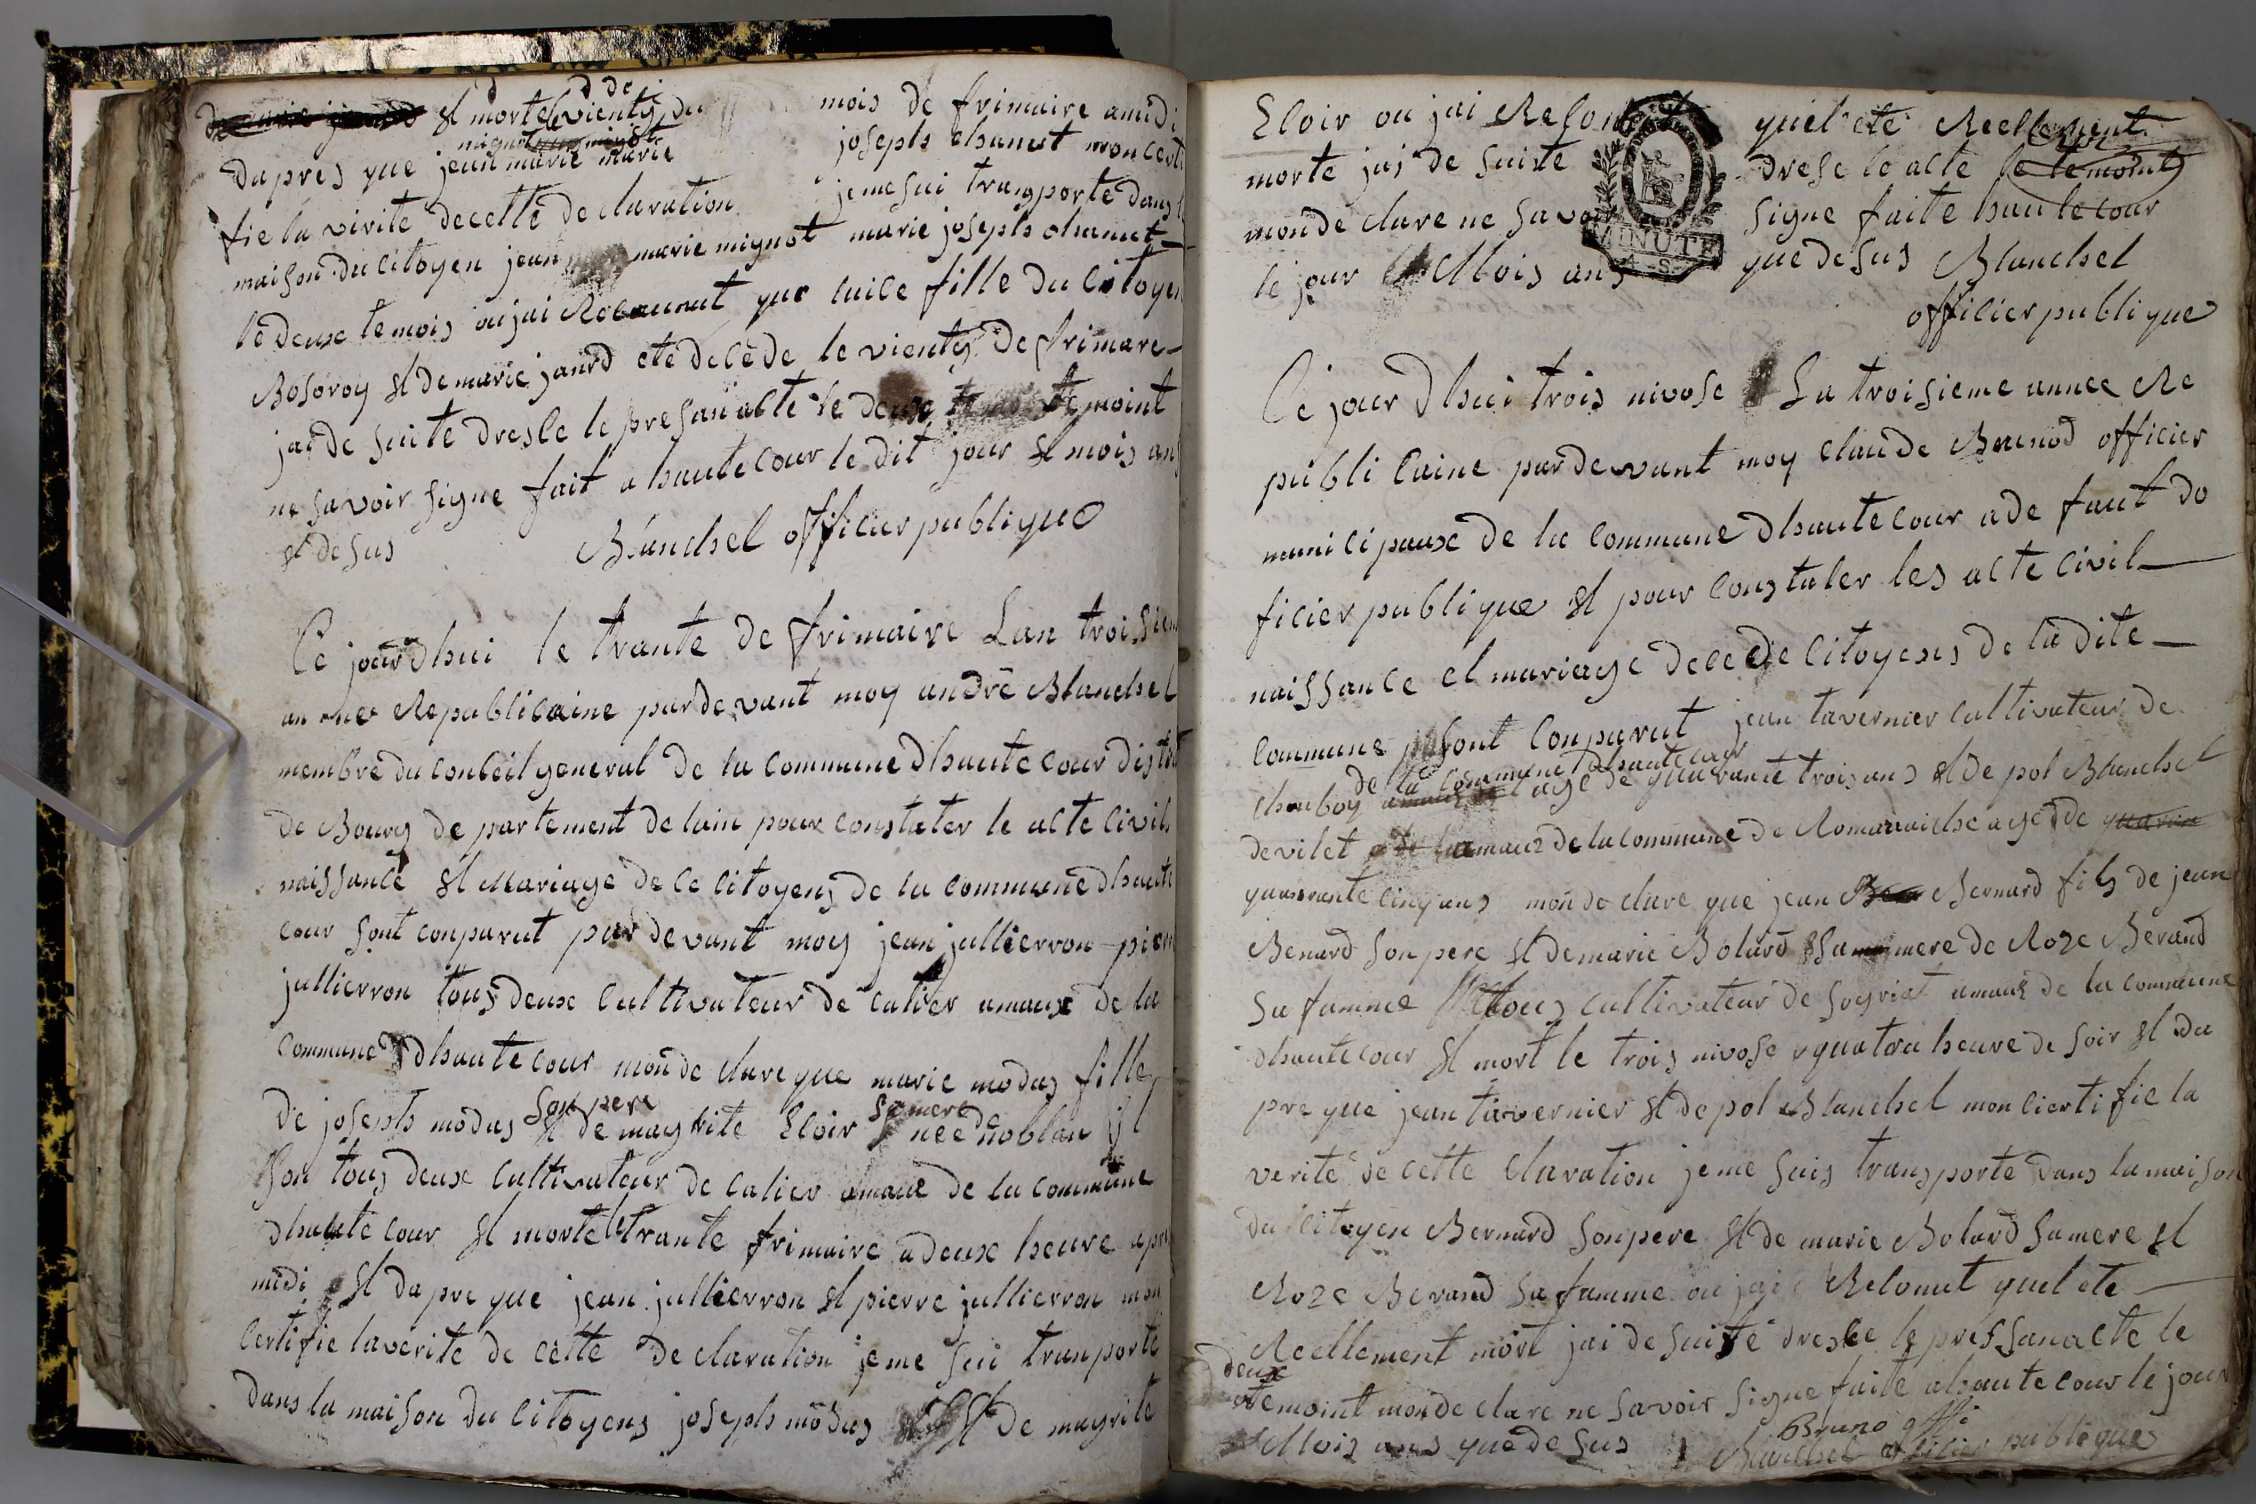 et morte le vienty du mois de frimaire a midi
dapres que jean marie mignot joseph chanut mon certi
fie la virite de cette declaration je me sui transporte dans l
maison du citoyen jean marie mignot marie joseph chanut
le deux temois ou jai Reconnut que luice fille du Citoyen
Bosoroy et de marie janrd ete decede le vienty de frimare
jai de suite dresse le presan acte le deux temoint
ne savoir signe fait a hautecour le dit jour et mois ans
et desus Blanchet officier publique
Ce jourdhui le trante de frimaire Lan troisiem
an nee Republicaine par devant moy andré Blanchet
membre du conseil general de la commune dhautecour distrit
de Bourg departement de lain pour constater le acte civil
naissance et Mariage de ce citoyens de la commune dhaute
cour sont conparut par devant moy jean jullierron pierr
jullierron tous deux cultivateur de calier amaux de la
commune dhautecour mon declare que marie modas fille
de joseph modas son pere et de magrite Eloir sa mere nee de noblan il
son tous deux cultivateur de calier amaux de la commune
dhautecour et morte le trante frimaire a deux heure apre
midi et dapre que jean jullierron et pierre jullierron mon
certifie la verite de cette declaration je me sui tranporte
dans la maison du citoyens joseph modas et de magrite
Eloir ou jai Reconut quel ete Reellement
morte jai de suite drese le acte le temoint
mon declare ne savoir signe faite hautecour
le jour et Mois ans que desus Blanchet
officier publique
Ce jour dhui trois nivose La troisieme annee Re
publicaine par devant moy claude Brunod officier
municipaux de la commune dhautecour a defaut do
ficier publique et pour constater les acte civil
naissance et mariage decede citoyens de la dite
commune sont conparut jean tavernier cultivateur de
chauboy de la commune dhautecour age de quarante trois ans et de pol Blanchet
de vilet amaux de la commune de Romanaiche age de
quarante cinq ans mon declare que jean Bernard fils de jean
Benard son pere et de marie Bolard sa mere de Roze Berand
sa famme tous cultivateur de soyriat amaux de la commune
dhautecour et mort le trois nivose a quatre heure de soir et da
pre que jean tavernier et de pol Blanchet mon certifie la
verite de cette claration je me suis transporte dans la maison
du citoyen Bernard son pere et de marie Bolard sa mere et
Roze Berand sa famme ou jai Reconut quel ete
Reellement mort jai de suite dresse le pressan acte le
deux temoint mon declare ne savoir signe faite a hautecour le jour
et Mois ans que desus Bruno offi
Blanchet officier publique
MINUTE